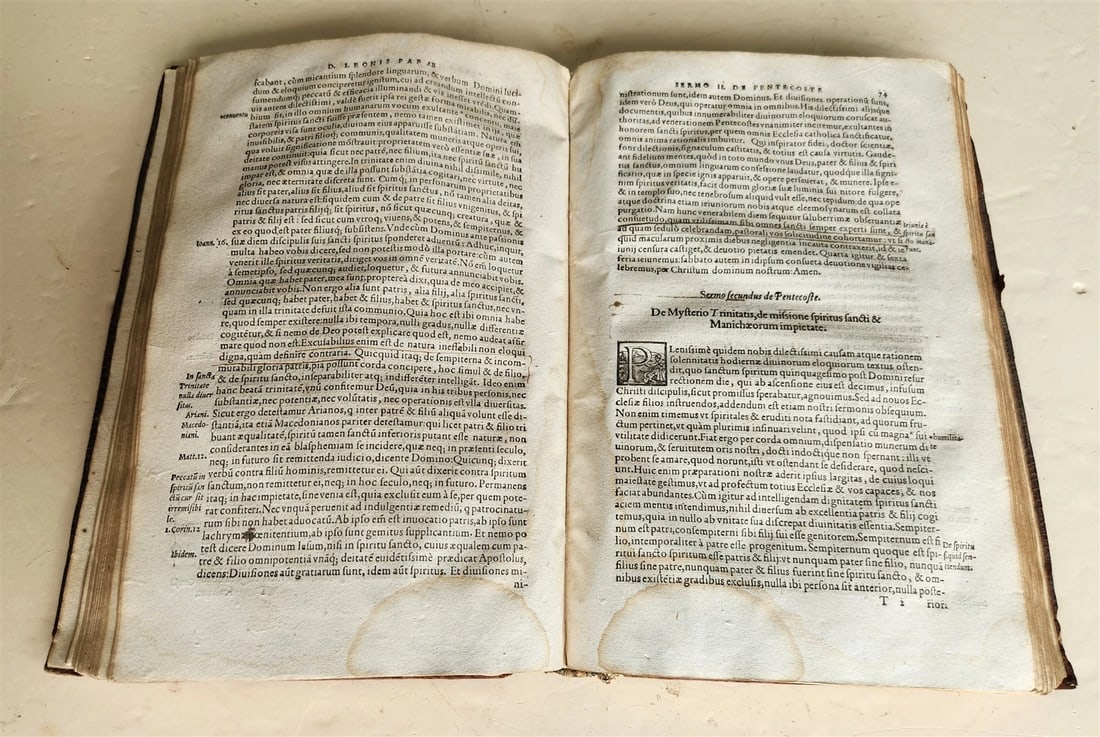 D. LEONIS PAPAE
scabant, cùm micantium splendore linguarum, & verbum Domini luci-
dum & eloquium conciperetur ignitum, cui ad creandum intellectũ con-
sumendumq; peccatũ & efficacia illuminandi & vis inesset vrẽdi. Quam-
uis autem dilectissimi, valdè fuerit ipsa rei gestæ forma mirabilis, nec du-
bium sit, in illo omnium humanarum vocum exultante concentu, maie-
statem spiritus sancti fuisse præsentem, nemo tamen existimet in
corporeis visa sunt oculis, diuinam eius apparuisse substãtiam. Natura
inuisibilis, & patri filioq; communis, qualitatem muneris atque operis sui,
qua voluit significatione mõstrauit: proprietatem verò essentiæ suæ, in sua
deitate continuit: quia sicut nec patrẽ, nec filium, ita nec spiritũ sanctũ hu
manus potest visus attingere. In trinitate enim diuina nihil dissimile, nihil
impar est, & omnia quæ de illa possunt substãtia cogitari, nec virtute, nec
gloria, nec æternitate discreta sunt. Cumq; in personarum proprietatibus
alius sit pater, alius sit filius, aliud sit spiritus sanctus, nõ tamen alia deitas,
nec diuersa natura est: siquidem cum & de patre sit filius vnigenitus, & spi
ritus sanctus patris filijq; sit spiritus, nõ sicut quæcunq; creatura, quæ &
patris & filij est: sed sicut cum vtroq; viuens, & potens, & sempiternus, &
ex eo quod est pater filiusq; subsistens. Vnde cùm Dominus ante passionis
Ioann. 16. suæ diem discipulis suis sancti spiritus sponderet aduentũ: Adhuc, inquit,
multa habeo vobis dicere, sed non potestis modò illa portare: cùm autem
venerit ille spiritus veritatis, diriget vos in omnẽ veritatẽ. Nõ em̃ loquetur
à semetipso, sed quæcunq; audiet, loquetur, & futura annunciabit vobis.
Omnia quæ habet pater, mea sunt, propterea dixi, quia de meo accipiet, &
annunciabit vobis. Non ergo alia sunt patris, alia filij, alia spiritus sancti,
sed quæcunq; habet pater, habet & filius, habet & spiritus sanctus, nec vn-
quam in illa trinitate defuit ista communio. Quia hoc est ibi omnia habe
re, quod semper existere: nulla ibi tempora, nulli gradus, nullæ differentiæ
cogitẽtur, & si nemo de Deo potest explicare quod est, nemo audeat affir
mare quod non est. Excusabilius enim est de natura ineffabili non eloqui
digna, quàm definire contraria. Quicquid itaq; de sempiterna & incom-
mutabili gloria patris, pia possunt corda concipere, hoc simul & de filio,
In sancta & de spiritu sancto, inseparabiliter atq; indifferẽter intelligãt. Ideo enim
Trinitate hanc beatã trinitatẽ, vnũ confitemur Deũ, quia in his tribus personis, nec
nulla diuer substantiæ, nec potentiæ, nec volũtatis, nec operationis est vlla diuersitas.
sitas.
Ariani. Sicut ergo detestamur Arianos, q̃ inter patrẽ & filiũ aliquã volunt esse di-
Macedo- stantiã, ita etiã Macedonianos pariter detestamur: qui licet patri & filio tri
niani. buant æqualitatẽ, spiritũ tamen sanctũ inferioris putant esse naturæ, non
considerantes in eã blasphemiam se incidere, quæ neq; in præsenti seculo,
Matt. 12. neq; in futuro sit remittenda iudicio, dicente Domino: Quicunq; dixerit
Peccatũ in verbũ contra filiũ hominis, remittetur ei. Qui aũt dixerit contra spiritum
spiritũ san sanctum, non remittetur ei, neq; in hoc seculo, neq; in futuro. Permanens
ctũ cur sit itaq; in hac impietate, sine venia est, quia exclusit eum à se, per quem pote-
irremissibi rat confiteri. Nec vnquã perueniet ad indulgentiæ remediũ, q̃ patrocinatu-
le. rum sibi non habet aduocatũ. Ab ipso em̃ est inuocatio patris, ab ipso sunt
1. Corin. 12 lachrymæ pœnitentium, ab ipso sunt gemitus supplicantium. Et nemo po
test dicere Dominum Iesum, nisi in spiritu sancto, cuius æqualem cum pa-
Ibidem. tre & filio omnipotentiã vnãq; deitatẽ euidẽtissimè prædicat Apostolus,
dicens: Diuisiones aũt gratiarum sunt, idem aũt spiritus. Et diuisiones mi-
ni-
SERMO II. DE PENTECOSTE 74
nistrationum sunt, idem autem Dominus. Et diuisiones operationũ sunt,
idem verò Deus, qui operatur omnia in omnibus. His dilectissimi alijsque
documentis, quibus innumerabiliter diuinorum eloquiorum coruscat au-
thoritas, ad venerationem Pentecostes vnanimiter incitemur, exultantes in
honorem sancti spiritus, per quem omnis Ecclesia catholica sanctificatur,
omnis anima rationalis imbuitur. Qui inspirator fidei, doctor scientiæ,
fons dilectionis, signaculum castitatis, & totius est causa virtutis. Gaude-
ant fidelium mentes, quòd in toto mundo vnus Deus, pater & filius & spiri
tus sanctus, omnium linguarum confessione laudatur, quodque illa signi-
ficatio, quæ in specie ignis apparuit, & opere perseuerat, & munere. Ipse e-
nim spiritus veritatis, facit domum gloriæ suæ luminis sui nitore fulgere,
& in templo suo, nec tenebrosum aliquid vult esse, nec tepidum: de qua ope
atque doctrina etiam ieiuniorum nobis atque eleemosynarum est collata
purgatio. Nam hunc venerabilem diem sequitur saluberrimæ obseruantiæ
consuetudo, quam vtilissimam sibi omnes sancti semper experti sunt, &
ad quam sedulò celebrandam, pastorali vos solicitudine cohortamur: vt si
quid macularum proximis diebus negligentia incauta contraxerit, id &
iunij censura castiget, & deuotio pietatis emendet. Quarta igitur & sexta
feria ieiunemus: sabbato autem in idipsum consueta deuotione vigilias ce-
lebremus, per Christum dominum nostrum: Amen.
Sermo secundus de Pentecoste.
De Mysterio Trinitatis, de missione spiritus sancti &
Manichæorum impietate.
PLenissimè quidem nobis dilectissimi causam atque rationem
solennitatis hodiernæ diuinorum eloquiorum textus osten-
dit, quo sanctum spiritum quinquagesimo post Domini resur
rectionem die, qui ab ascensione eius est decimus, infusum
Christi discipulis, sicut promissus sperabatur, agnouimus. Sed ad nouos Ec-
clesiæ filios instruendos, addendum est etiam nostri sermonis obsequium.
Non enim timemus vt spirituales & eruditi nota fastidiant, ad quorum fru-
ctum pertinet, vt quàm plurimis insinuari velint, quod ipsi cũ magna* sui *humilita-
vtilitate didicerunt. Fiat ergo per corda omnium, dispensatio munerum di te
uinorum, & seruitutem oris nostri, docti indoctique non spernant: illi vt
probent se amare, quod norunt, isti vt ostendant se desiderare, quod nesci-
unt. Huic enim præparationi nostræ aderit ipsius largitas, de cuius loqui
maiestate gestimus, vt ad profectum totius Ecclesiæ & vos capaces, & nos
faciat abundantes. Cùm igitur ad intelligendam dignitatem spiritus sancti
aciem mentis intendimus, nihil diuersum ab excellentia patris & filij cogi
temus, quia in nullo ab vnitate sua discrepat diuinitatis essentia. Sempiter-
num est patri, consempiterni sibi filij sui esse genitorem. Sempiternum est fi
lio, intemporaliter à patre esse progenitum. Sempiternum quoque est spi- De spiritu
ritui sancto spiritum esse patris & filij: vt nunquam pater sine filio, nunquã
filius sine patre, nunquam pater & filius fuerint sine spiritu sancto, & om-
nibus existẽtiæ gradibus exclusis, nulla ibi persona sit anterior, nulla poste-
T 2 rior.